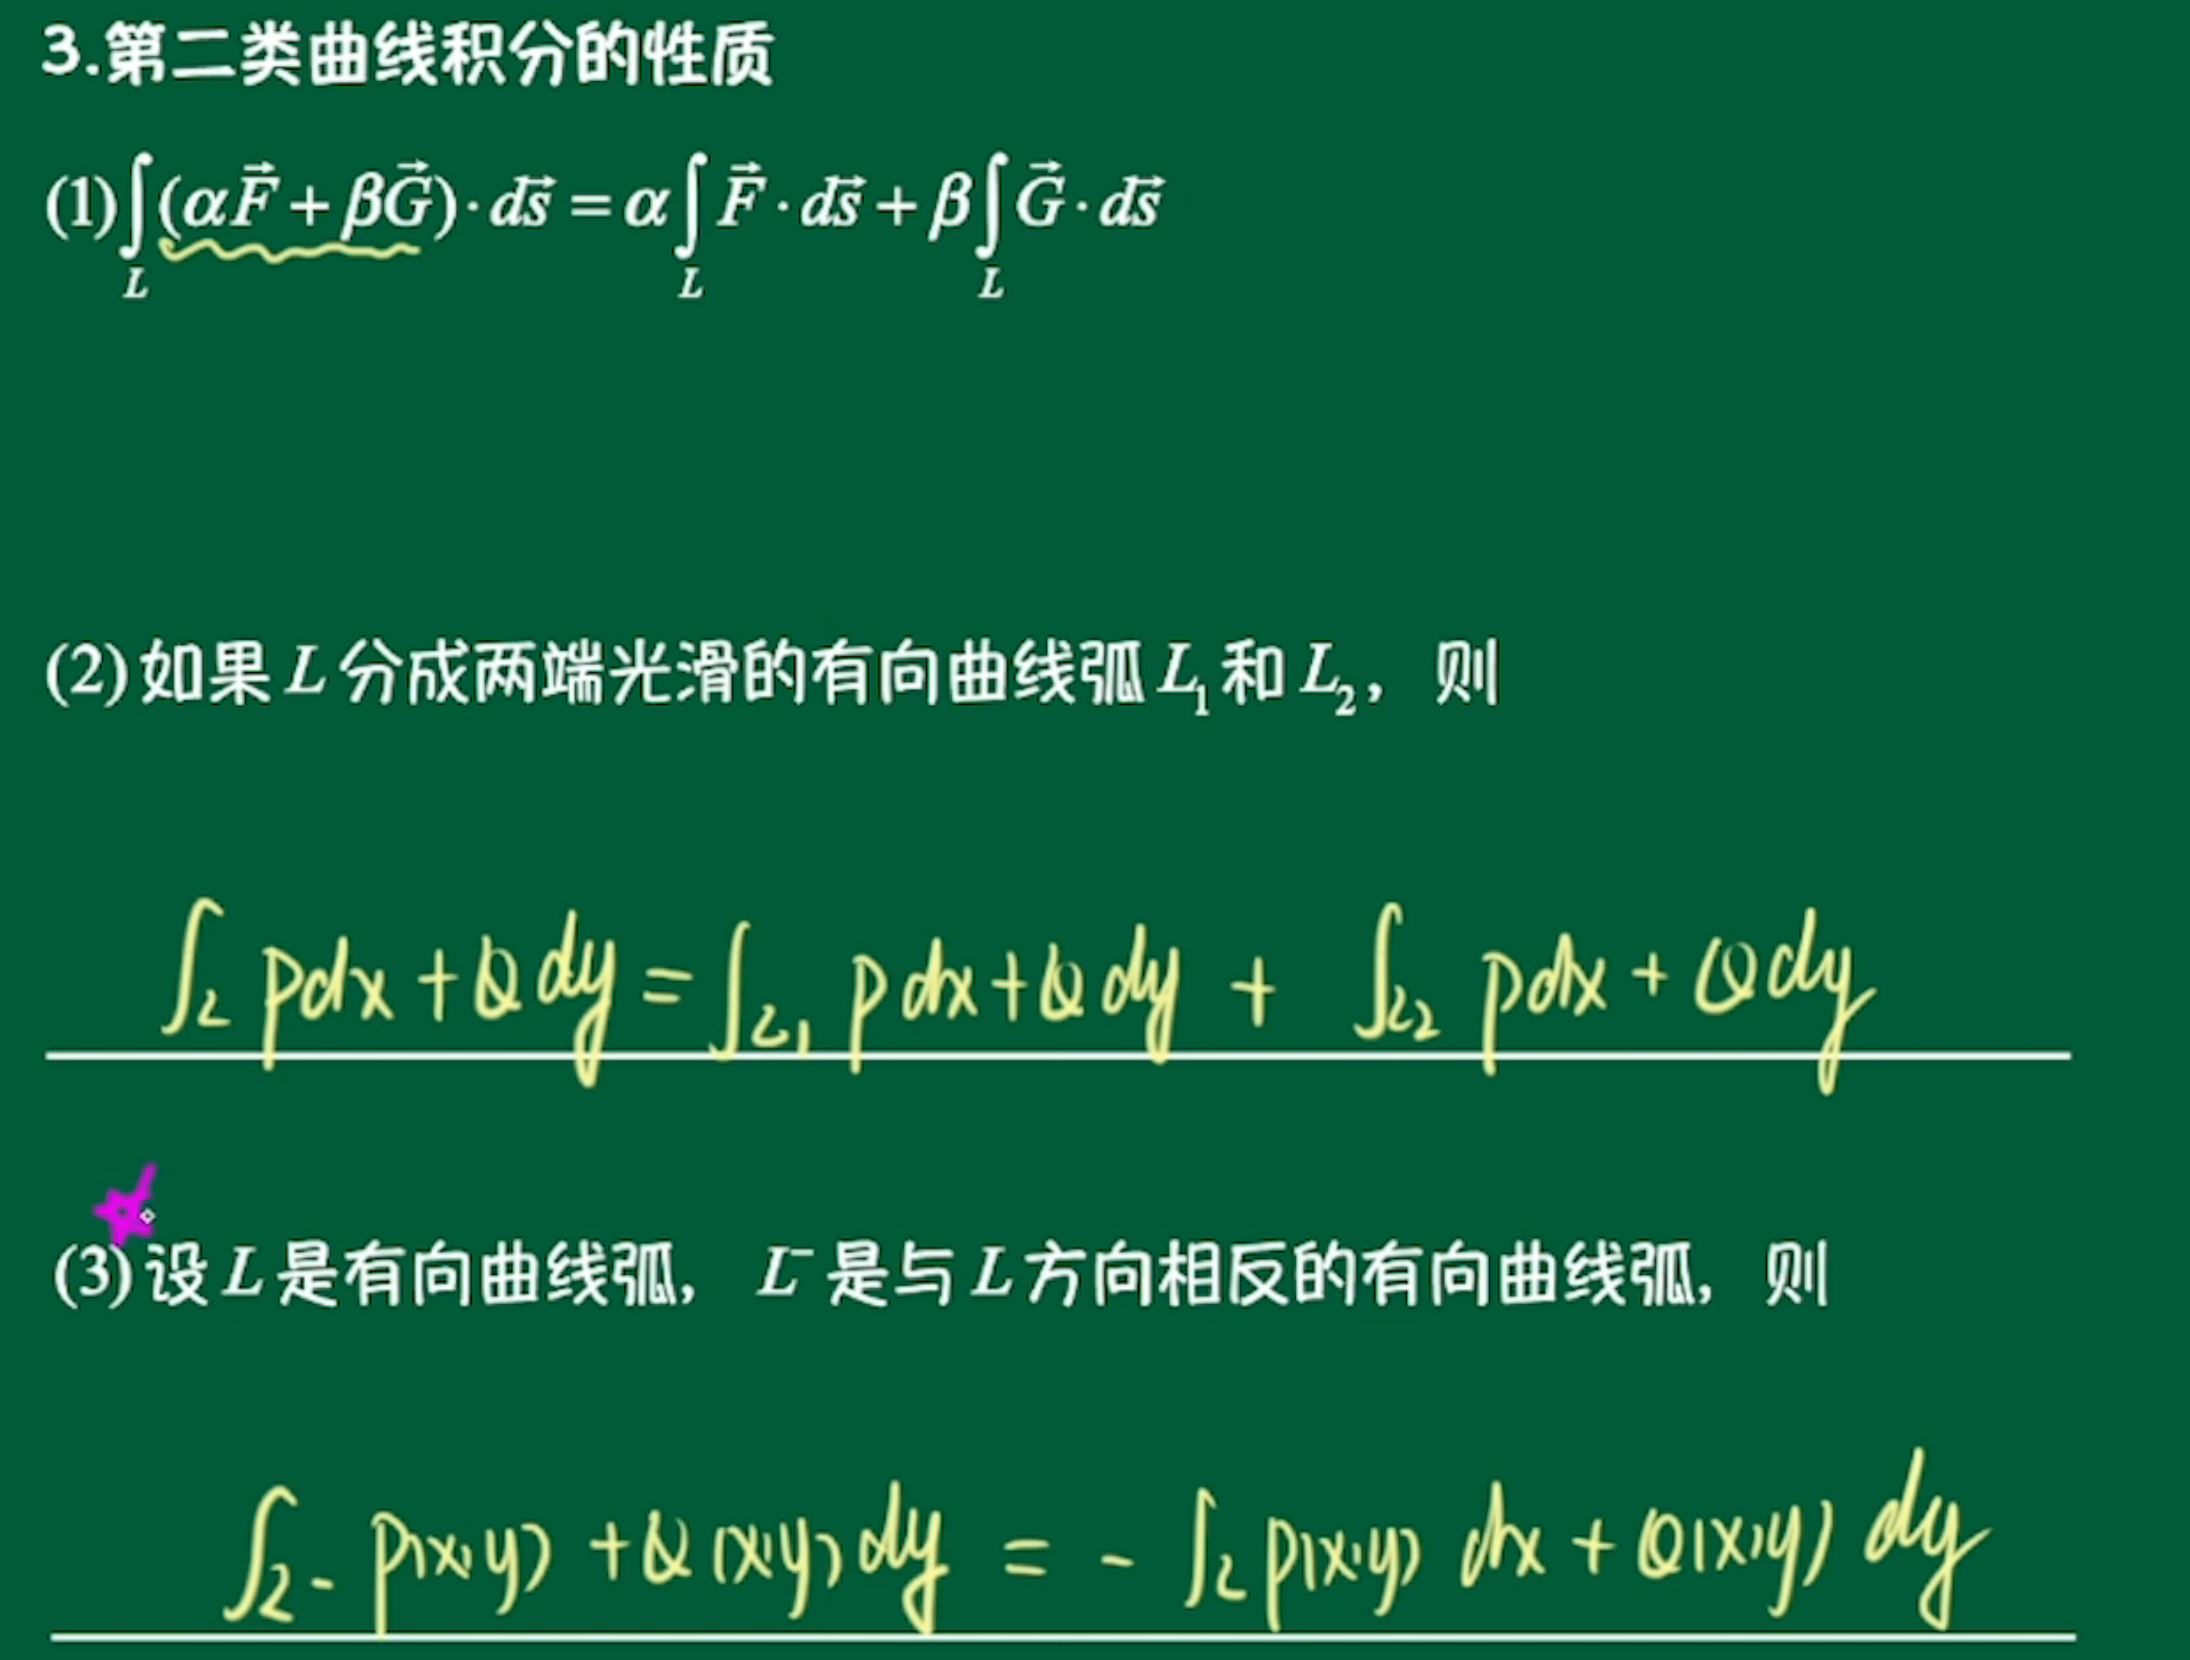 3.第二类曲线积分的性质
(1)∫_L(αF⃗+βG⃗)·ds⃗=α∫_L F⃗·ds⃗+β∫_L G⃗·ds⃗
(2)如果L分成两端光滑的有向曲线弧L₁和L₂，则
∫_L Pdx+Qdy=∫_L₁ Pdx+Qdy+∫_L₂ Pdx+Qdy
(3)设L是有向曲线弧，L⁻是与L方向相反的有向曲线弧，则
∫_L⁻ P(x,y)+Q(x,y)dy=-∫_L P(x,y)dx+Q(x,y)dy